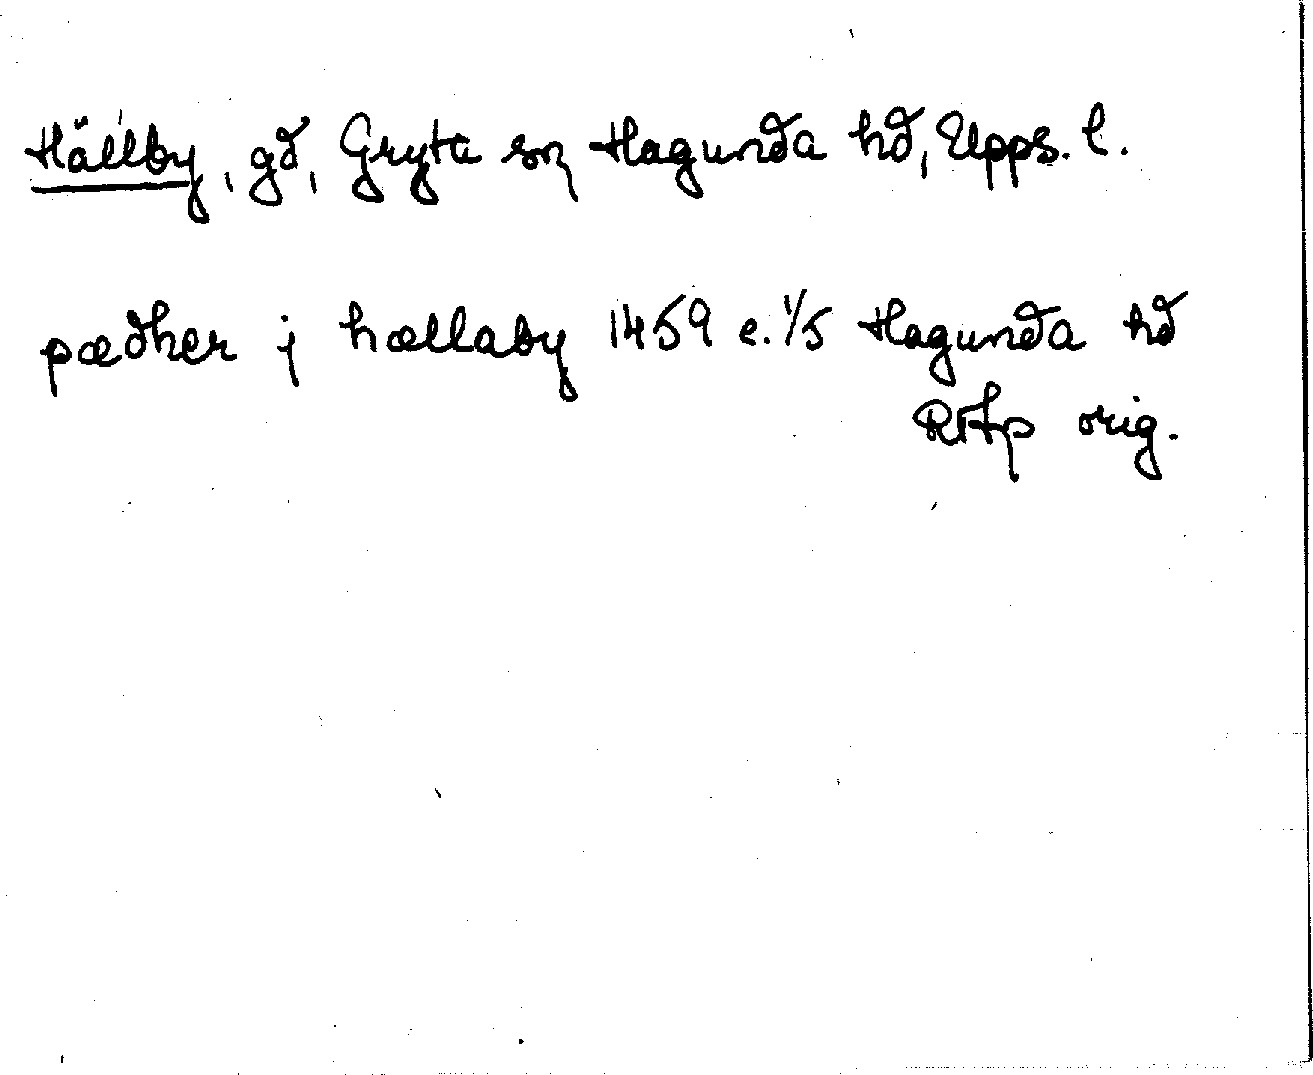 Hällby, gd, Gryta sn Hagunda hd, Upps. l.
pædher j hællaby 1459 e. 1/5 Hagunda hd
RAp orig.